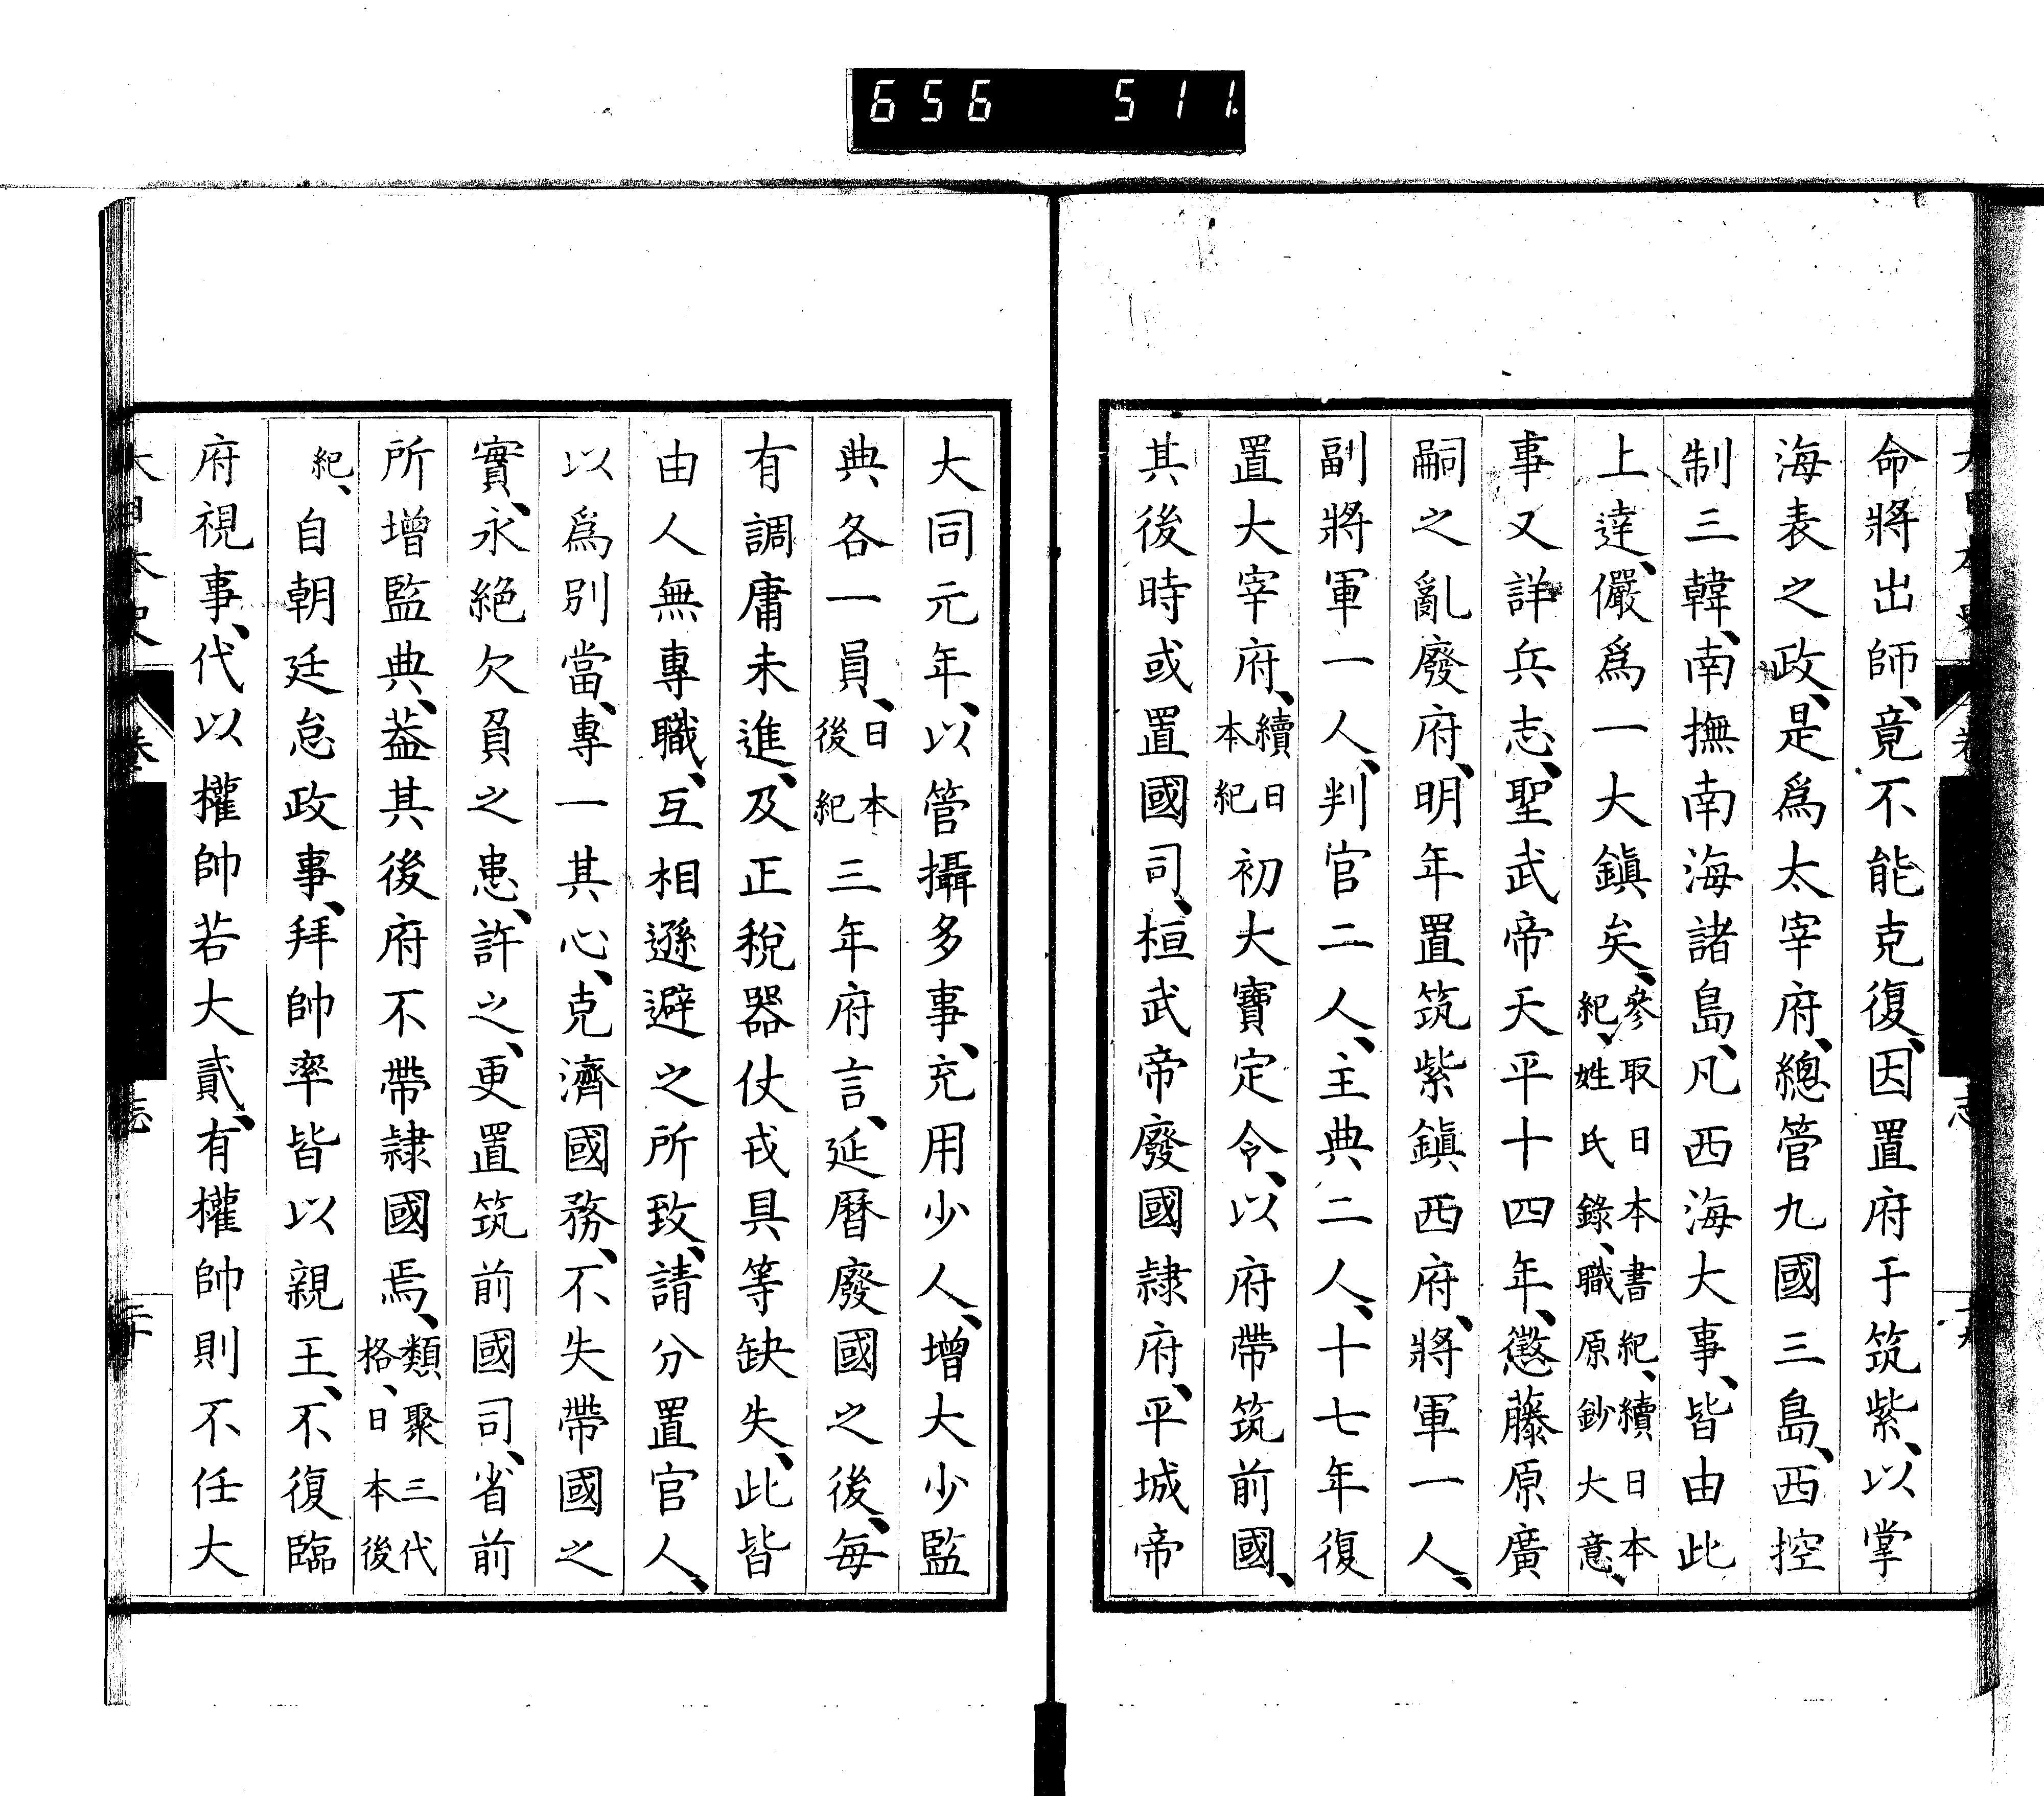 656 511
命將出師、竟不能克復、因置府于筑紫、以掌
海表之政、是爲太宰府、總管九國三島、西控
制三韓、南撫南海諸島、凡西海大事、皆由此
上達、儼爲一大鎭矣、參取日本書紀、續日本紀、姓氏錄、職原鈔大意、
事又詳兵志、聖武帝天平十四年、懲藤原廣
嗣之亂廢府、明年置筑紫鎭西府、將軍一人、
副將軍一人、判官二人、主典二人、十七年復
置大宰府、續日本紀初大寶定令、以府帶筑前國、
其後時或置國司、桓武帝廢國隷府、平城帝
大同元年、以管攝多事、充用少人、增大少監
典各一員、日本後紀三年府言、延曆廢國之後、每
有調庸未進、及正稅器仗戎具等缺失、此皆
由人無專職、互相遜避之所致、請分置官人、
以爲別當、專一其心、克濟國務、不失帶國之
實、永絕欠負之患、許之、更置筑前國司、省前
所增監典、葢其後府不帶隷國焉、類聚三代格、日本後
紀、自朝廷怠政事、拜帥率皆以親王、不復臨
府視事、代以權帥若大貳、有權帥則不任大
大日本史 卷 志 二十